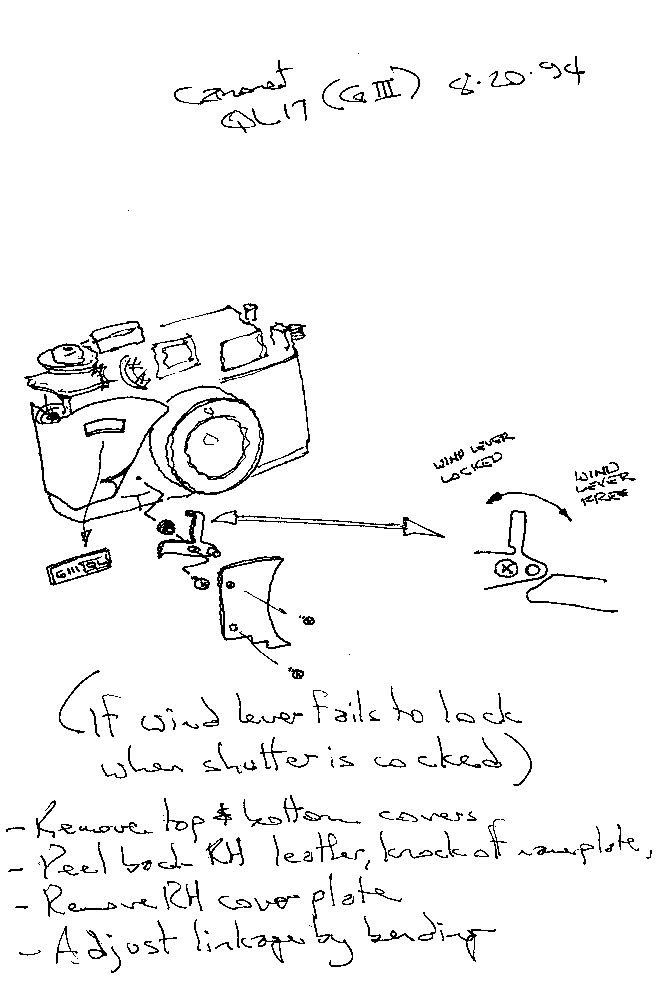 Canonet
QL17 (GIII) 8·20·94
WIND LEVER
LOCKED
WIND
LEVER
FREE
(If wind lever fails to lock
when shutter is cocked)
- Remove top & bottom covers
- Peel back RH leather, knock of nameplate,
- Remove RH cover plate
- Adjust linkage by bending